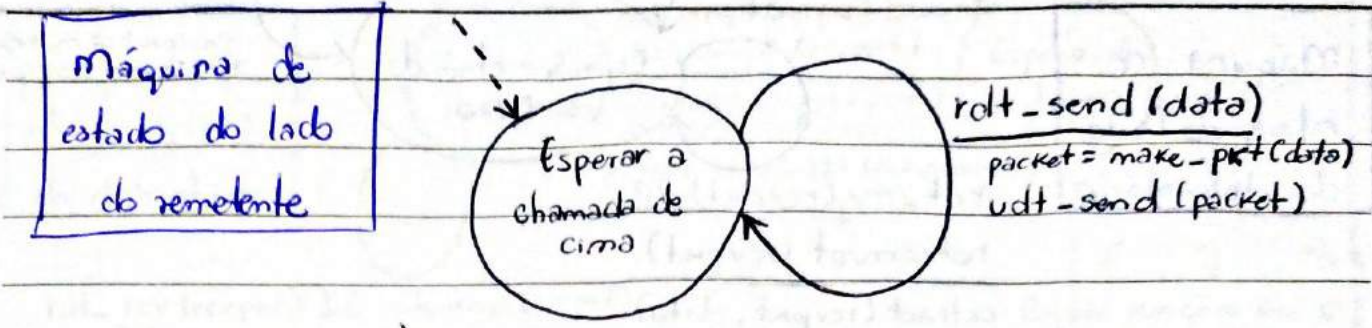 Máquina de
estado do lado
do remetente
Esperar a
chamada de
cima
rdt_send (data)
packet = make_pkt (data)
udt_send (packet)